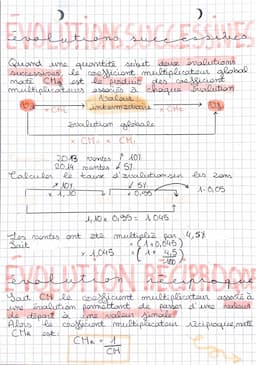 ÉVOLUTIONS SUCCESSIVES
évolutions successives
Quand une quantité subit deux évolutions
successives, le coefficient multiplicateur global
noté CMG est le produit des coefficient
multiplicateurs associés à chaque évolution
Valeur
intermédiaire
× CM1
× CM2
évolution globale
2013 ventes ↑ 10%
2014 ventes ↓ 5%
Calculer le taux d'évolution sur les 2 ans
↗ 10% ↙ 5%
× 1,10 × 0,95 1-0,05
1,10 × 0,95 = 1,045
Les ventes ont été multiplié par 4,5%
Soit × (1+0,045)
× 1,045 × (1+ 4,5/100)
ÉVOLUTION RÉCIPROQUE
évolution réciproque
Soit CM le coefficient multiplicateur associé à
une évolution permettant de passer d'une valeur
de départ à une valeur finale
Alors le coefficient multiplicateur réciproque, noté
CMR est :
CMR = 1/CM